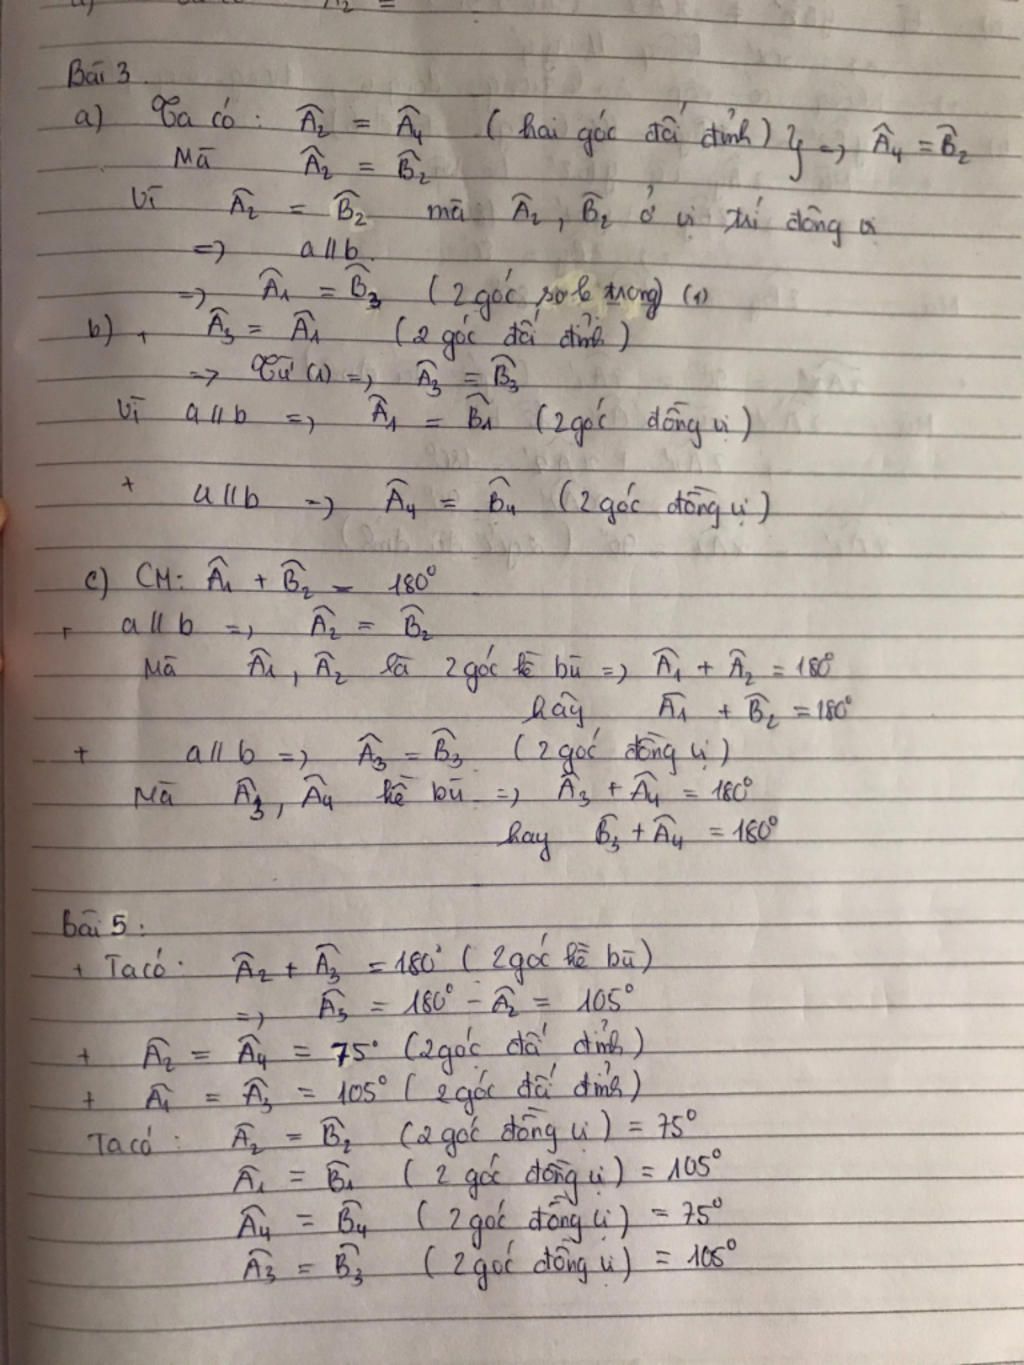 Bài 3
a) Ta có: Â₂ = Â₄ (hai góc đối đỉnh) } => Â₄ = B̂₂
Mà Â₂ = B̂₂
Vì Â₂ = B̂₂ mà Â₂, B̂₂ ở vị trí đồng vị
=> a//b.
=> Â₁ = B̂₃ (2 góc so le trong) (1)
b) + Â₃ = Â₁ (2 góc đối đỉnh)
=> Từ (1) => Â₃ = B̂₃
Vì a//b => Â₁ = B̂₁ (2 góc đồng vị)
+ a//b => Â₄ = B̂₄ (2 góc đồng vị)
c) CM: Â₁ + B̂₂ = 180°
+ a//b => Â₂ = B̂₂
Mà Â₁, Â₂ là 2 góc kề bù => Â₁ + Â₂ = 180°
hay Â₁ + B̂₂ = 180°
+ a//b => Â₃ = B̂₃ (2 góc đồng vị)
Mà Â₃, Â₄ kề bù => Â₃ + Â₄ = 180°
hay B̂₃ + Â₄ = 180°
Bài 5:
+ Ta có: Â₂ + Â₃ = 180° (2 góc kề bù)
=> Â₃ = 180° - Â₂ = 105°
+ Â₂ = Â₄ = 75° (2 góc đối đỉnh)
+ Â₁ = Â₃ = 105° (2 góc đối đỉnh)
Ta có: Â₂ = B̂₂ (2 góc đồng vị) = 75°
Â₁ = B̂₁ (2 góc đồng vị) = 105°
Â₄ = B̂₄ (2 góc đồng vị) = 75°
Â₃ = B̂₃ (2 góc đồng vị) = 105°